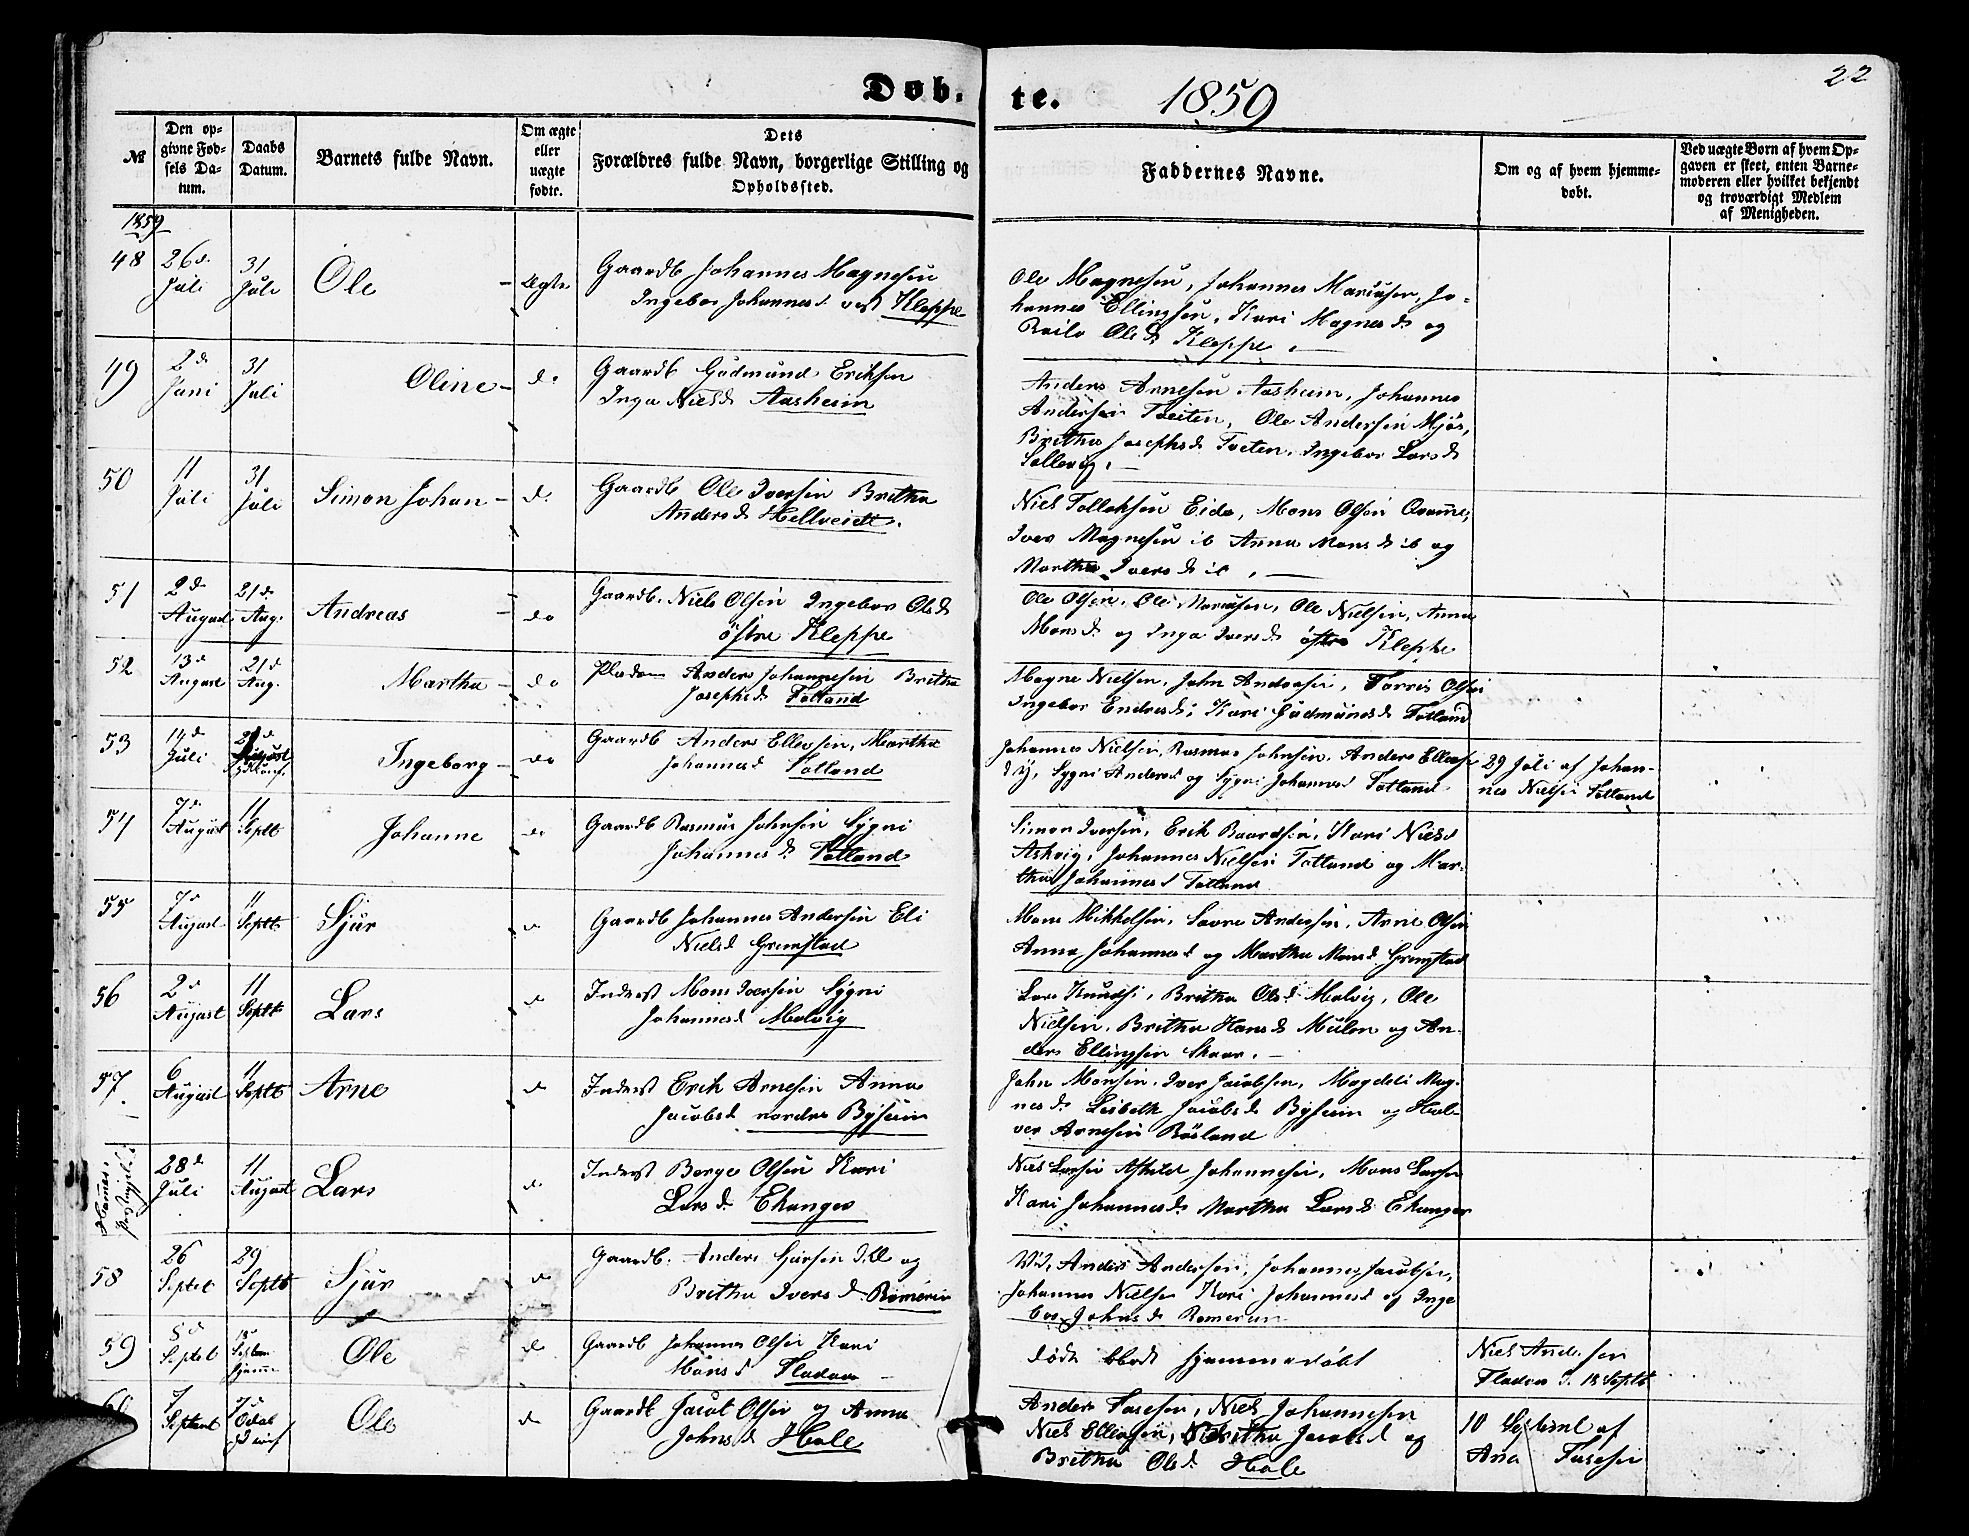 Døb.
te.
1859
22
№
Den op-
givne Fød-
sels Da-
tum.
Daabs
Datum.
Barnets fulde Navn.
Om ægte
eller
uægte
fødte.
Dets
Forældres fulde Navn, borgerlige Stilling og
Opholdssted.
Faddernes Navne.
Om og af hvem hjemme-
døbt.
Ved uægte Børn af hvem Op-
gaven er skeet, enten Barne-
moderen eller hvilket bekjendt
og troværdigt Medlem
af Menigheden.
1859
48
26d.
Juli
31
Juli
Ole
Ægte
Gaardb Johannes Magnesen
Ingebor Johannesd vest Kleppe
Ole Magnesen, Johannes Mariusen, Jo-
hannes Ellingsen, Kari Magnesd og
Olesd Kleppe.
49
2d
Juni
31
Juli
Oline
do
Gaardb Gudmund Eriksen
Inga Nielsd Aasheim
Anders Arnesen Aasheim, Johannes
Andersen Tveiten, Ole Andersen Mjøs,
Britha Josephsd Tveten, Ingebor Larsd
Sollevig.
50
11
Juli
31
Juli
Simon Johan
do
Gaardb Ole Iversen Britha
Andersd Helleveidt.
Niels Tollaksen Eide, Mons Olsen Qvamme,
Iver Magnesen ib Anna Monsd ib og
Martha Iversd ib.
51
2d
August
21d
Aug.
Andreas
do
Gaardb. Niels Olsen Ingebor Olsd
østre Kleppe
Ole Olsen, Ole Mariusen, Ole Nielsen, Anna
Monsd og Inga Iversd østre Kleppe
52
13d
August
21d
Aug.
Martha
do
Pladsm Anders Johannesen Britha
Josephsd Totland
Magne Nielsen, John Andersen, Torris Olsen
Ingebor Endresd, Kari Gudmundsd Totland
53
14d
Juli
21d
August
Ingeborg
do
Gaardb Anders Ellevsen, Martha
Johannesd Totland
Johannes Nielsen, Rasmus Johnsen, Anders Ellevse
d y, Sygni Andersd og Sygni Johannesd Totland
29 Juli af Johan-
nes Nielsen Totland
54
7d
August
11
Septb
Johanne
do
Gaardb Rasmus Johnsen Sygni
Johannesd. Totland
Simon Iversen, Erik Baardsen, Kari Nielsd
Askvig, Johannes Nielsen Totland og Mar-
tha Johannesd Totland
55
7d
August
11
Septb
Sjur
do
Gaardb Johannes Andersen Eli
Nielsd Grimstad
Mons Mikkelsen, Sjovre Andersen, Arne Olsen
Anna Johannesd og Martha Monsd Grimstad
56
2d
August
11
Septb
Lars
do
Inderst Mons Iversen Sygni
Johannesd Molvig
Lars Knudsen, Britha Olsd Molvig, Ole
Nielsen, Britha Hansd Mulen og An-
ders Ellingsen Skaar.
57
6
August
11
Septb
Arne
do
Inderst Erik Arnesen Anna
Jacobsd nordre Byseim
John Monsen, Iver Jacobsen, Magdeli Mag-
nesd Lisbeth Jacobsd Byseim og Hal-
vor Arnesen Røsland
28d
Juli
11
August
Lars
do
Inderst Berge Olsen Kari
Larsd Ekanger
Niels Larsen Askild Johannesen, Mons Larsen
Kari Johannesd Martha Larsd Ekanger
58
26
Septbr
29
Septb
Sjur
do
Gaardb. Anders Sjursen Ill og
Britha Iversd. Romerein
Anders Andersen, Johannes Jacobsen,
Johannes Nielsen Kari Johannesd og Inge
bor Johnsd Romerein
59
5d
Septbr
18
Septbr
hjemme
Ole
do
Gaardb Johannes Olsen Kari
Monsd Fladøen
døde blot hjemmedøbt
Niels Andersen
Fladøen d. 18 Septb
60
7
Septemb
Ole
do
Gaardb Jacob Olsen og Anna
Johnsd Hole
Anders Fasesen, Niels Johannesen
Niels Ellevsen, Britha Jacobsd og
Britha Olsd Hole
10 Septembr af
Fasesen